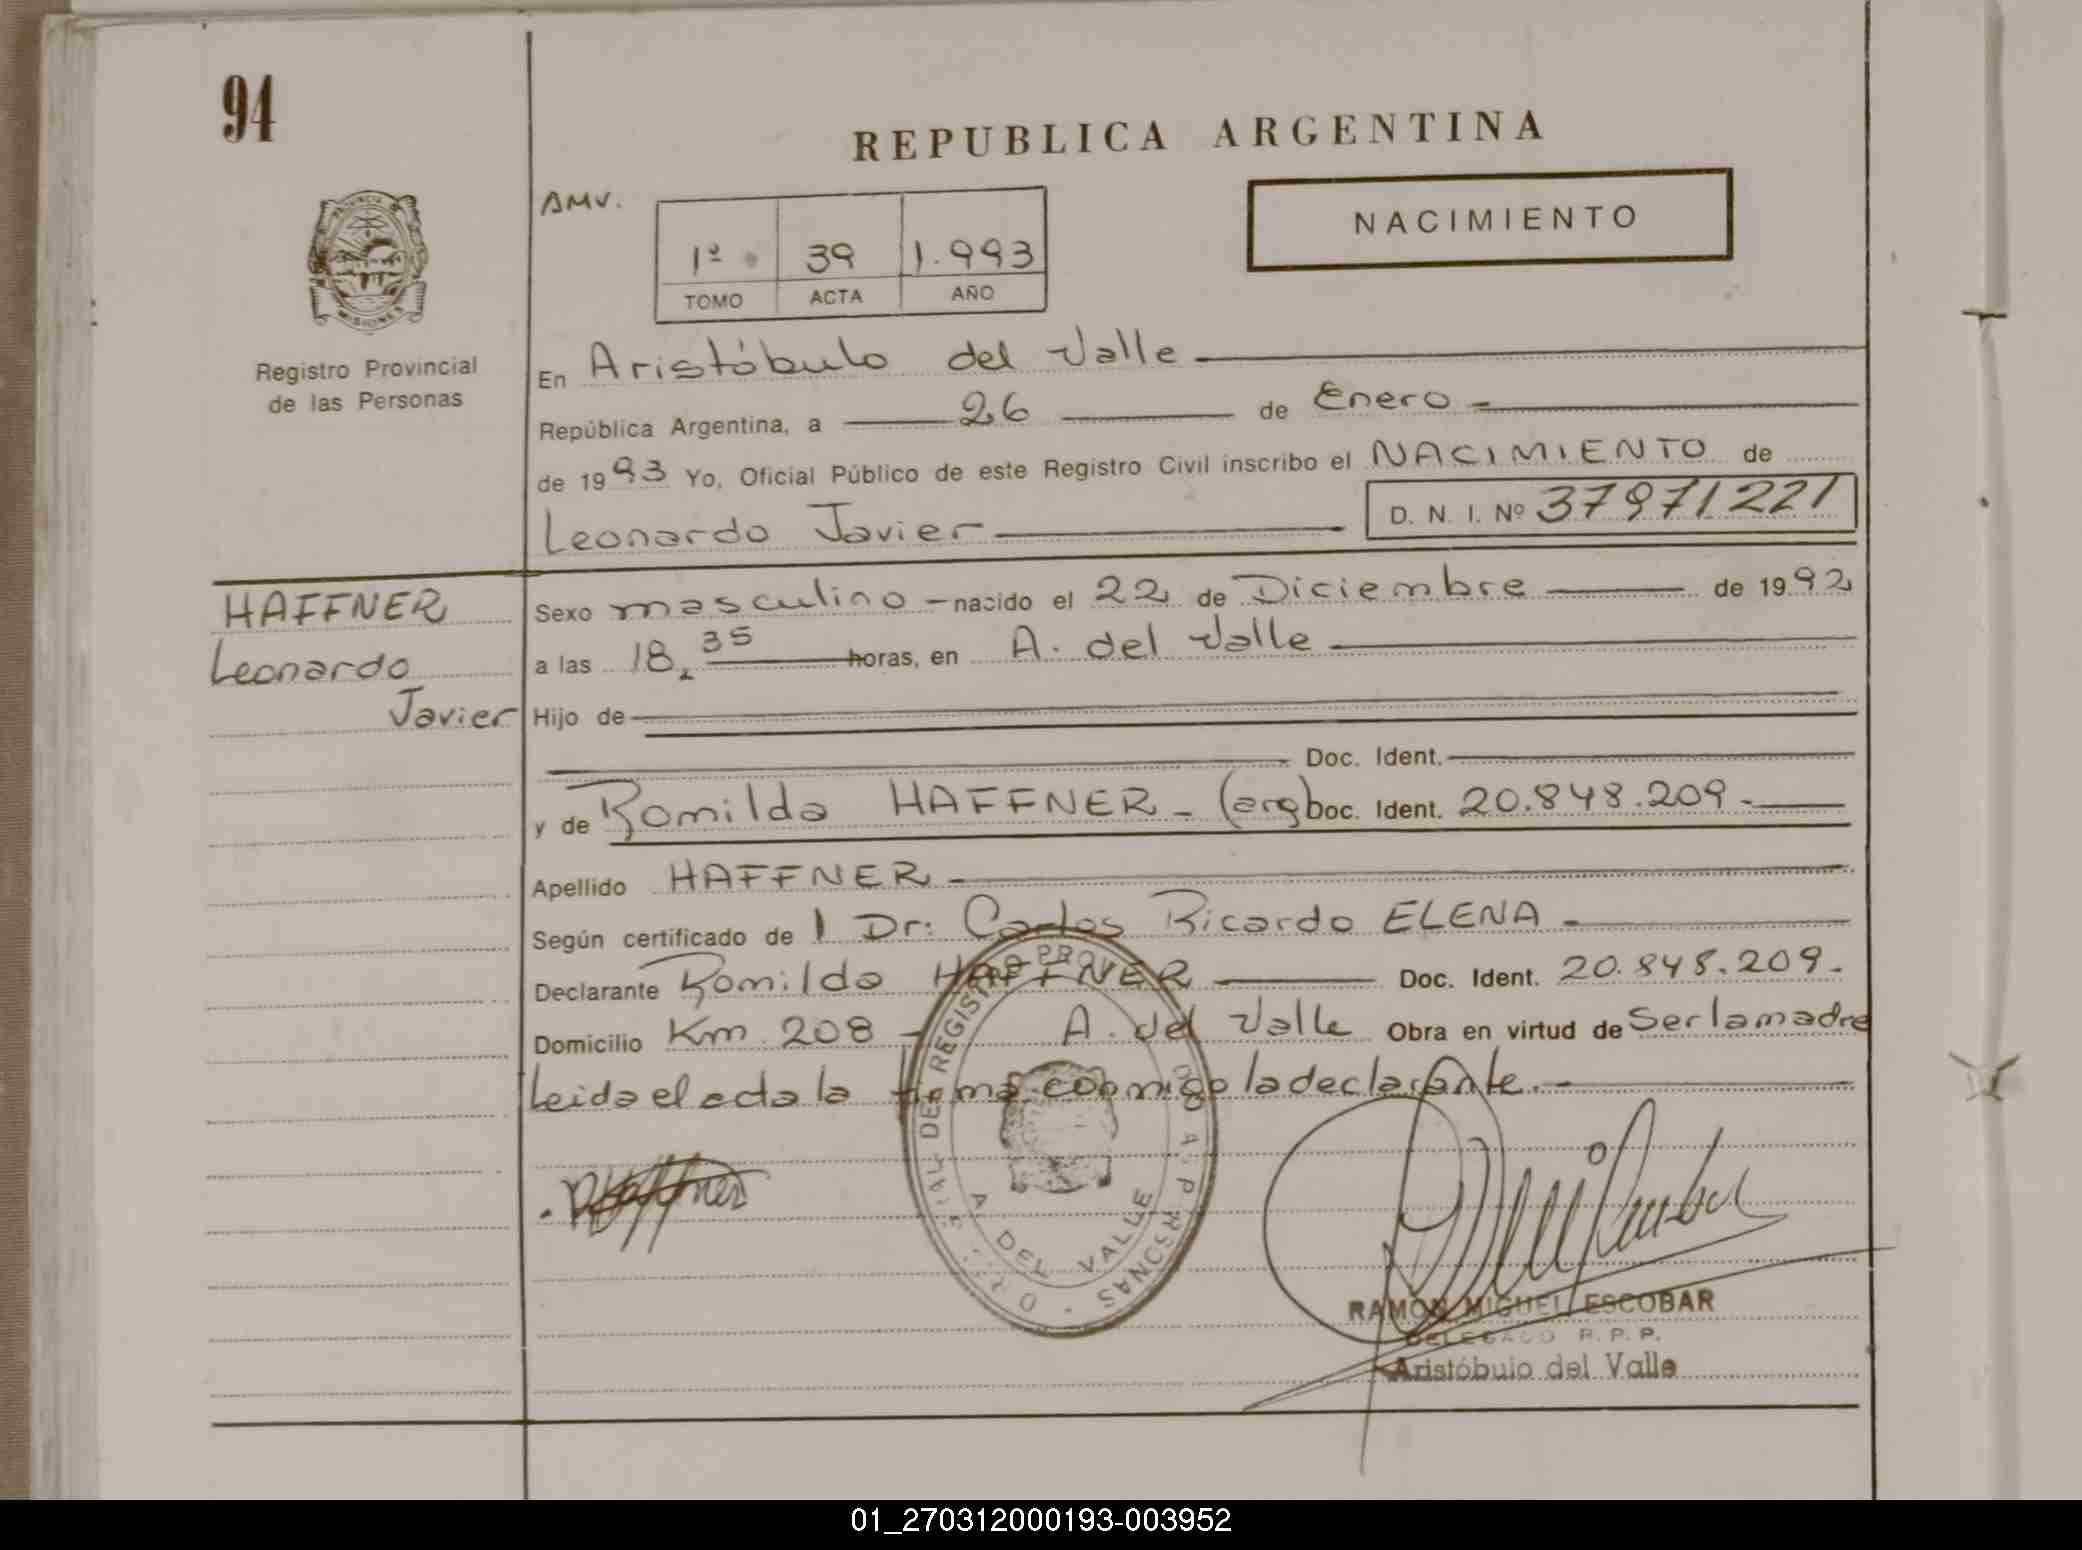 94
REPUBLICA ARGENTINA
AMV.
NACIMIENTO
1º 39 1.993
TOMO ACTA AÑO
PROVINCIA DE
MISIONES
Registro Provincial
de las Personas
En Aristóbulo del Valle
República Argentina, a 26 de Enero
de 1993 Yo, Oficial Público de este Registro Civil inscribo el NACIMIENTO de
Leonardo Javier D. N. I. Nº 37971221
HAFFNER
Leonardo
Javier
Sexo masculino - nacido el 22 de Diciembre de 1992
a las 18,35 horas, en A. del Valle
Hijo de
Doc. Ident.
y de Romilda HAFFNER - (arg) Doc. Ident. 20.848.209.-
Apellido HAFFNER
Según certificado de l Dr: Carlos Ricardo ELENA -
Declarante Romilda HAFFNER Doc. Ident. 20.848.209.
Domicilio Km 208 - A. del Valle Obra en virtud de Ser la madre
Leida el acta la firma conmigo la declarante.-
REGISTRO PROV
A DEL VALLE
RAMON MIGUEL ESCOBAR
DELEGADO R. P. P.
Aristóbulo del Valle
01_270312000193-003952